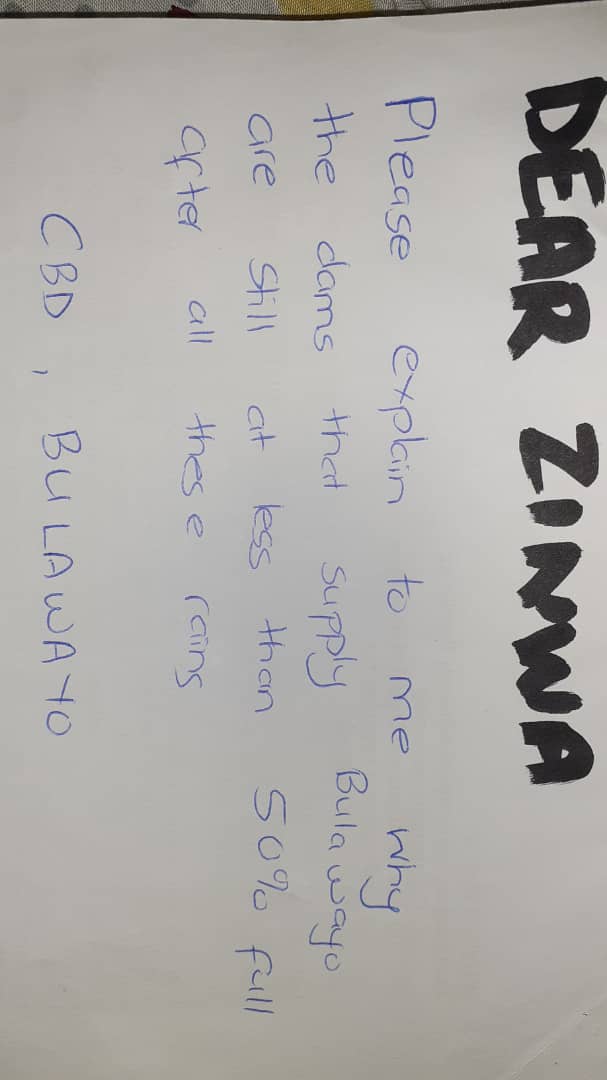 DEAR ZINWA
Please explain to me why
the dams that supply Bulawayo
are still at less than 50% full
after all these rains
CBD, BULAWAYO